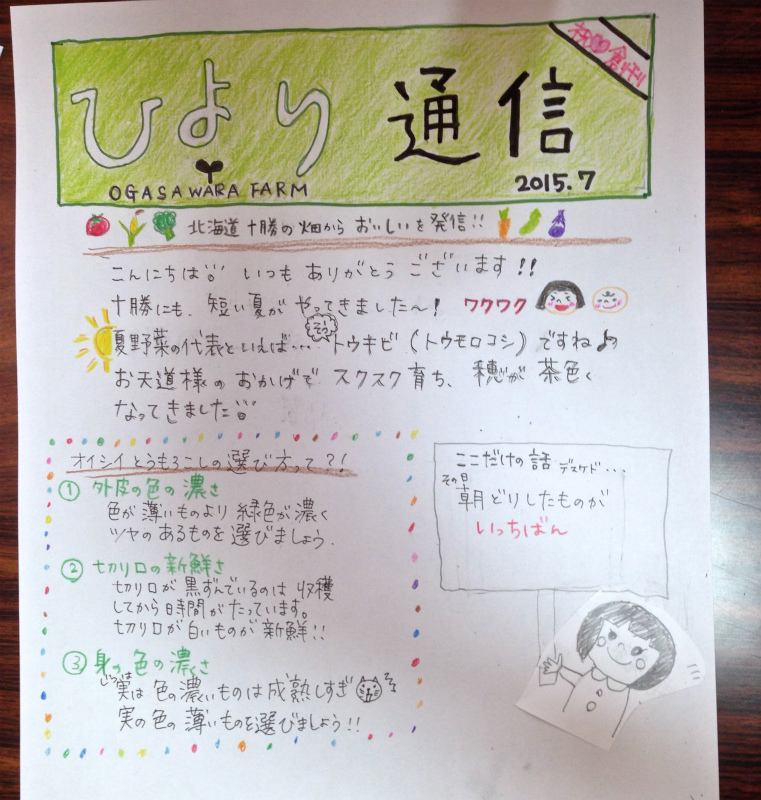 祝♡創刊
ひより通信
OGASAWARA FARM
2015.7
北海道十勝の畑からおいしいを発信!!
こんにちは いつも ありがとう ございます!!
十勝にも、短い夏が やってきました〜! ワクワク
夏野菜の代表といえば… そう トウキビ(トウモロコシ)ですね♪
お天道様の おかげで スクスク育ち、穂が 茶色く
なってきました
オイシイとうもろこしの選び方って?!
① 外皮の色の濃さ
色が薄いものより 緑色が濃く
ツヤのあるものを選びましょう.
② 切り口の新鮮さ
切り口が黒ずんでいるのは 収穫
してから時間がたっています。
切り口が白いものが新鮮!!
③ 身の色の濃さ
じつは
実は 色の濃いものは成熟しすぎ
実の色の薄いものを選びましょう!!
ここだけの話 デスケド...
その日
朝どりしたものが
いっちばん